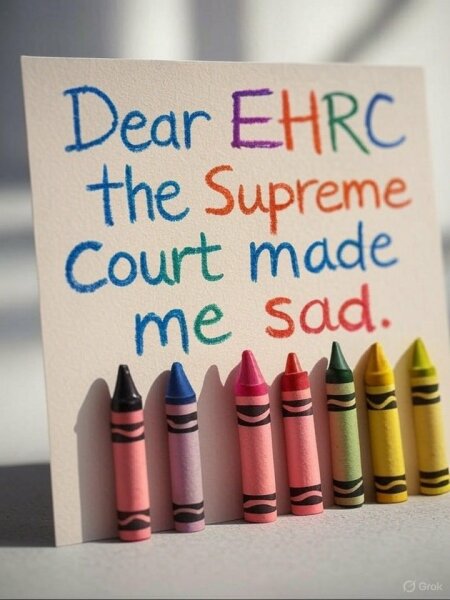 Dear EHRC
the Supreme
Court made
me sad.
Grok